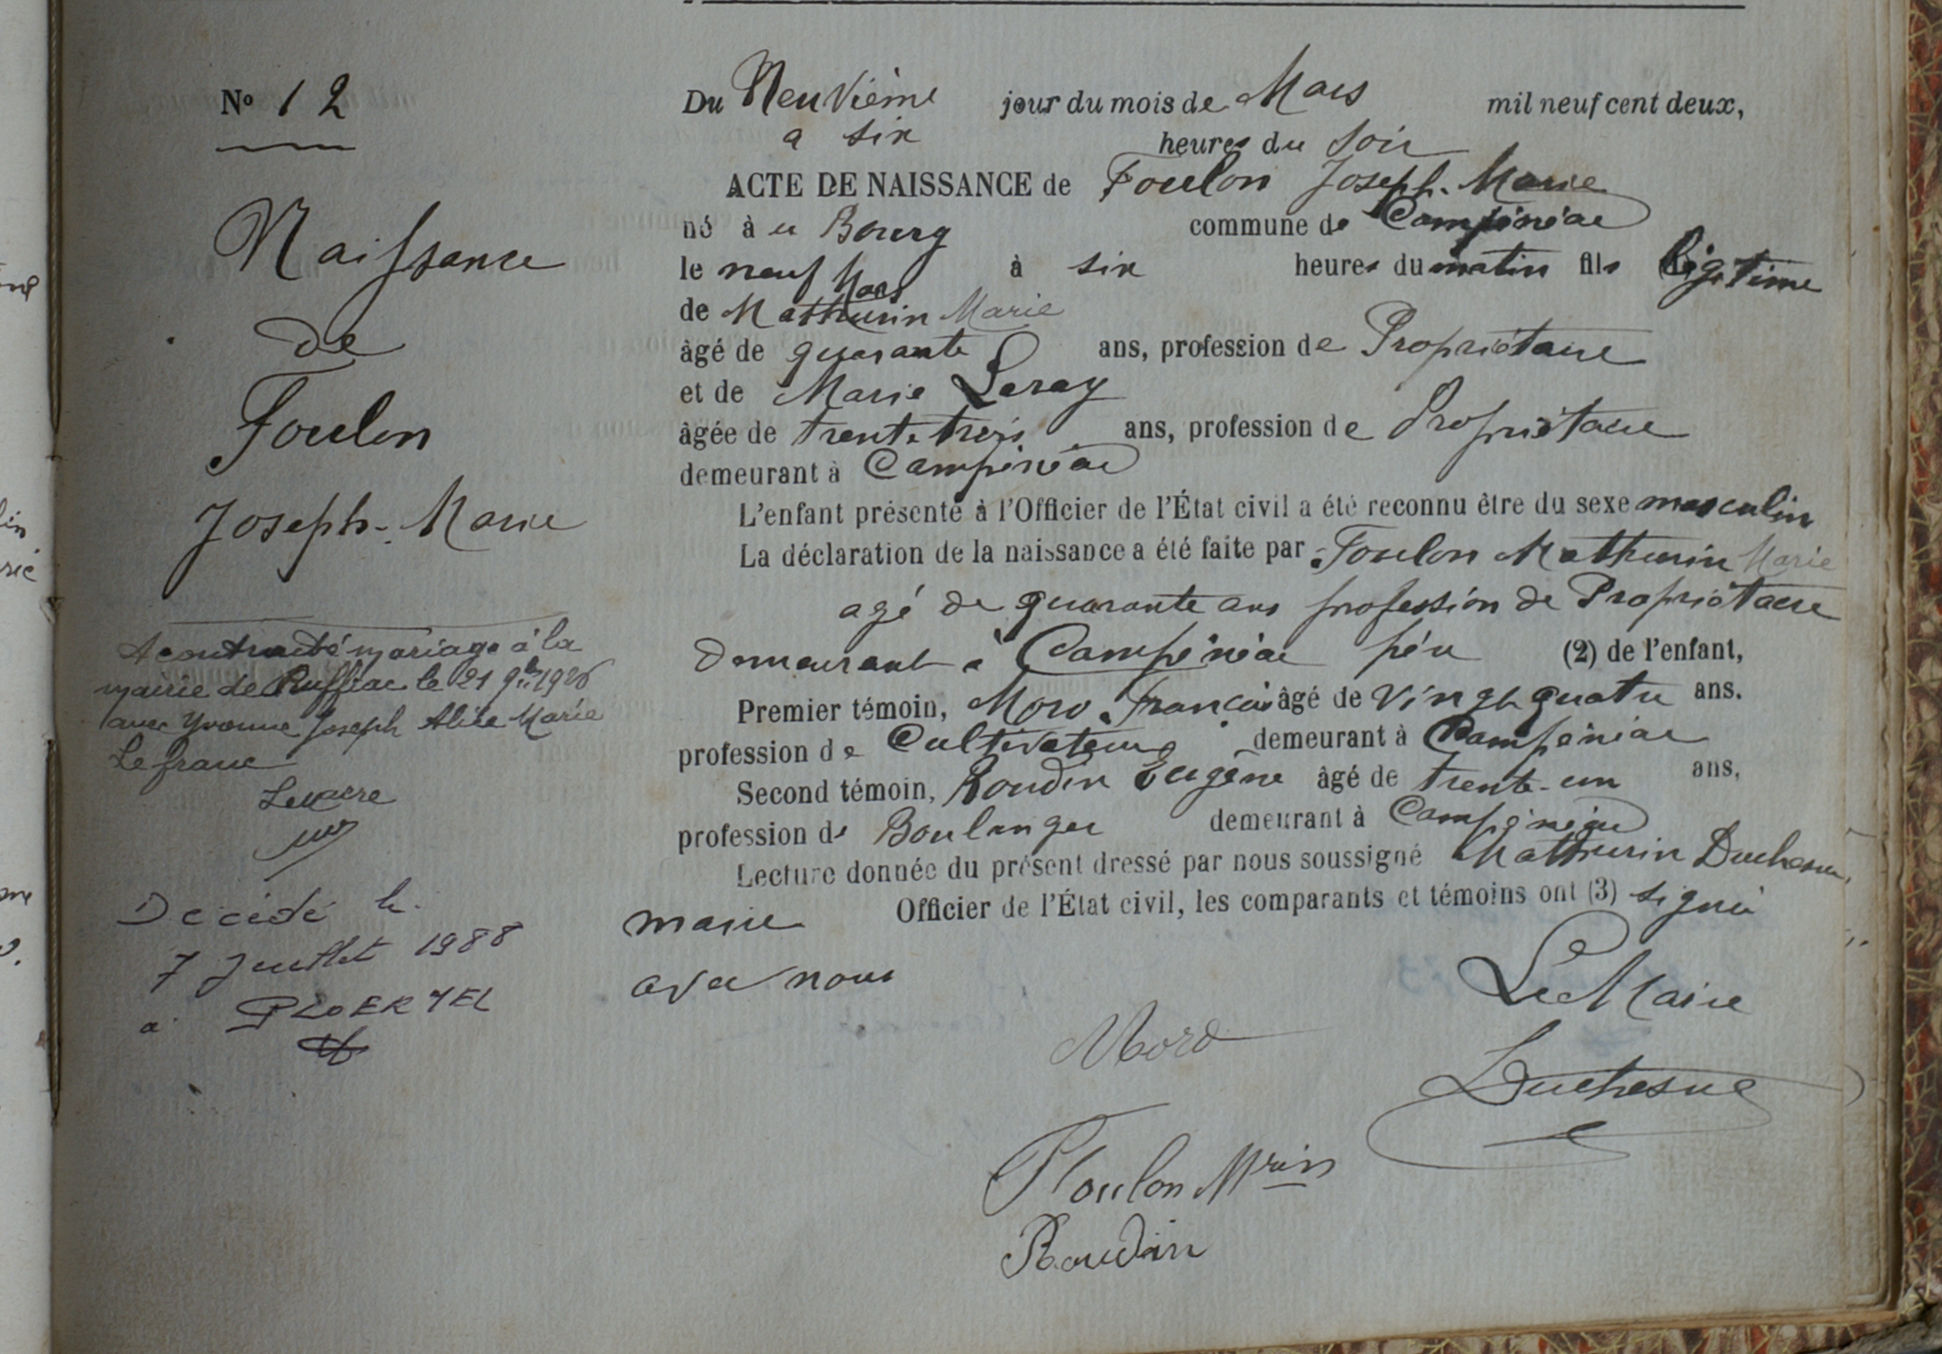 N° 12
Naissance
de
Foulon
Joseph-Marie
A contracté mariage à la
mairie de Ruffiac le 21 9bre 1926
avec Yvonne Joseph Alice Marie
Lefranc
Le Maire
Décédé le
7 Juillet 1988
à PLOERMEL
Du Neuvième jour du mois de Mars mil neuf cent deux,
a six heures du soir
ACTE DE NAISSANCE de Foulon Joseph-Marie
né à u Bourg commune de Campénéac
le neuf Mars à six heures du matin fils légitime
de Mathurin Marie
âgé de quarante ans, profession de Propriétaire
et de Marie Leray
âgée de trente trois ans, profession de Propriétaire
demeurant à Campénéac
L'enfant présenté à l'Officier de l'État civil a été reconnu être du sexe masculin
La déclaration de la naissance a été faite par Foulon Mathurin Marie
agé de quarante ans profession de Propriétaire
demeurant à Campénéac père (2) de l'enfant,
Premier témoin, Moro François âgé de vingt quatre ans.
profession de Cultivateur demeurant à Campénéac
Second témoin, Roudin Eugène âgé de trente-un ans,
profession de Boulanger demeurant à Campénéac
Lecture donnée du présent dressé par nous soussigné Mathurin Duchesne,
maire Officier de l'État civil, les comparants et témoins ont (3) signé
avec nous
Le Maire
Moro
Duchesne
Foulon Mrin
Roudin